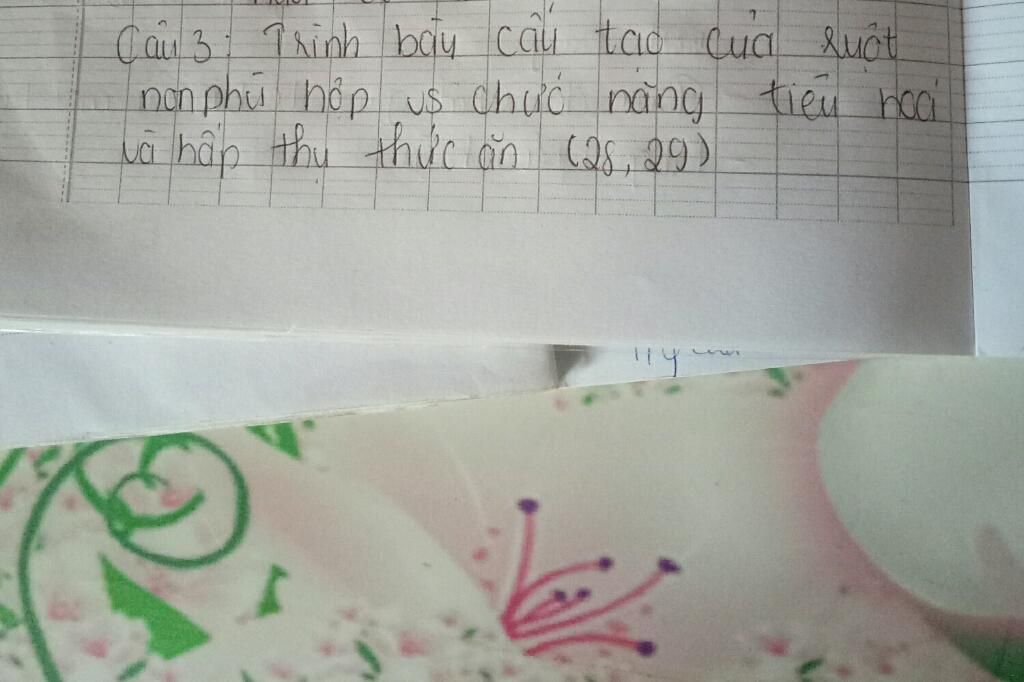 Câu 3: Trình bày cấu tạo của ruột
non phù hợp vs chức năng tiêu hoá
và hấp thụ thức ăn (28, 29)